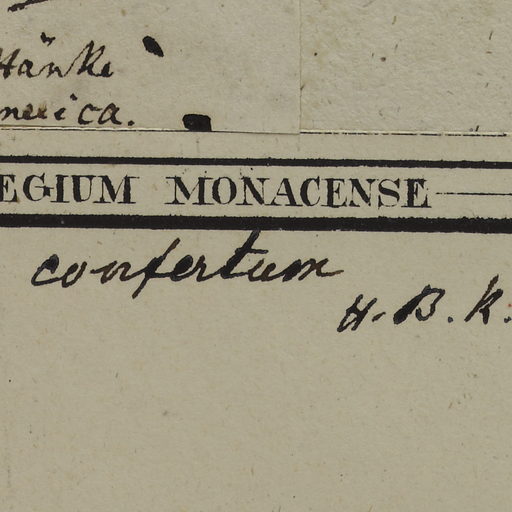 Hänke
merica.
EGIUM MONACENSE
confertum
H. B. K.